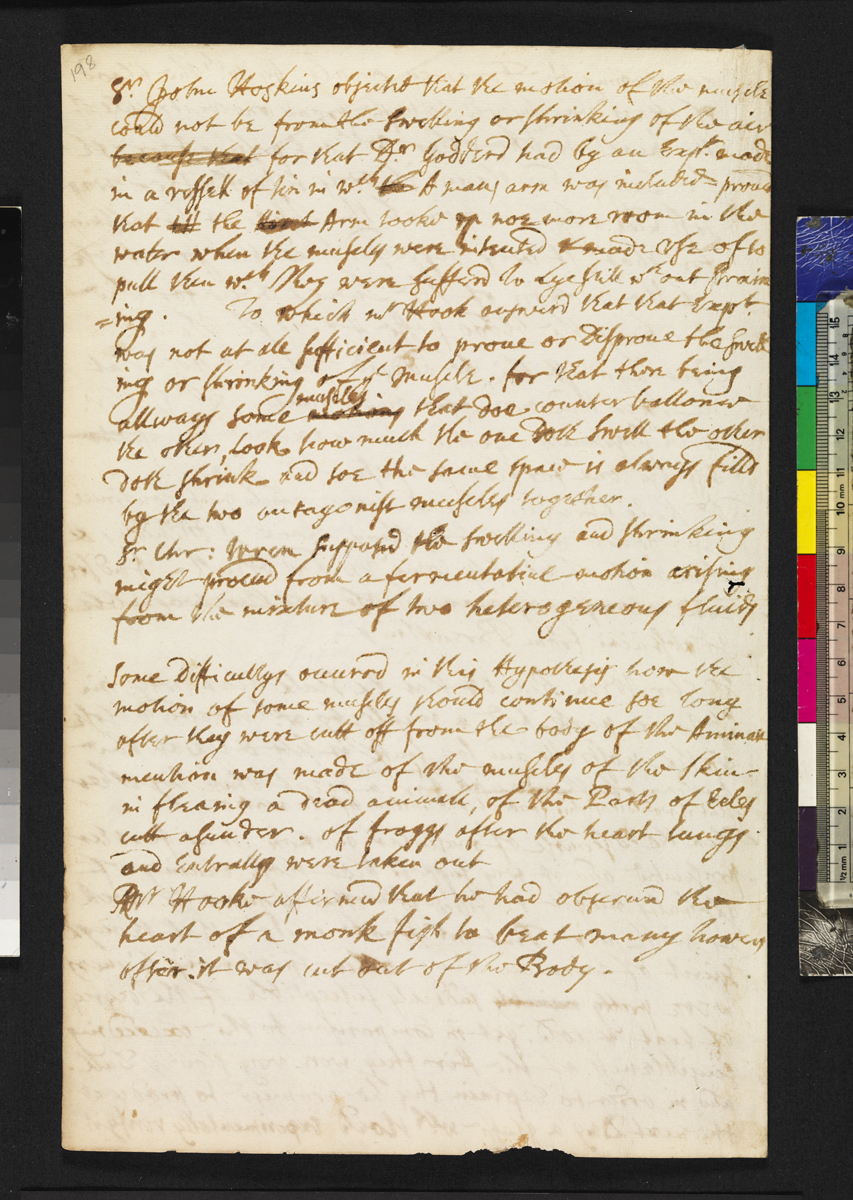 198
Sr. John Hoskins objected that the motion of the muscle
could not be from the swelling or shrinking of the air
because that for that Dr. Godderd had by an Expt. made
in a vessell of tin in wch the A mans arm was included proud
that the Arm tooke up noe more room in the
water when the musels were intented & made use of to
pull then wch they were sufferd to Lye still wthout straim
=ing. To which mr Hook answerd that that Expt.
was not at all sufficient to proue or Disproue the swell
ing or shrinking of ye muscle. for that there being
muscles
allways some motions that doe counter ballance
the other, Look how much the one doth swell the other
doth shrink and soe the same space is always filld
by the two antagonist muscles together.
Sr. Chr: Wren supposd the swelling and shrinking
might proceed from a fermentatiue motion arising
from the mixture of two heterogeneous fluids
Some difficultys occurred in this Hypothesis how the
motion of some muscles should continue soe long
after they were cutt off from the body of the Animall
mention was made of the muscles of the skin
in fleaing a dead animall, of the Parts of Eeles
cutt asunder. of froggs after the heart lungs
and Entralls were taken out
Mr Hooke affirmed that he had obserued the
heart of a monk fish to beat many howers
after it was cut out of the Body.